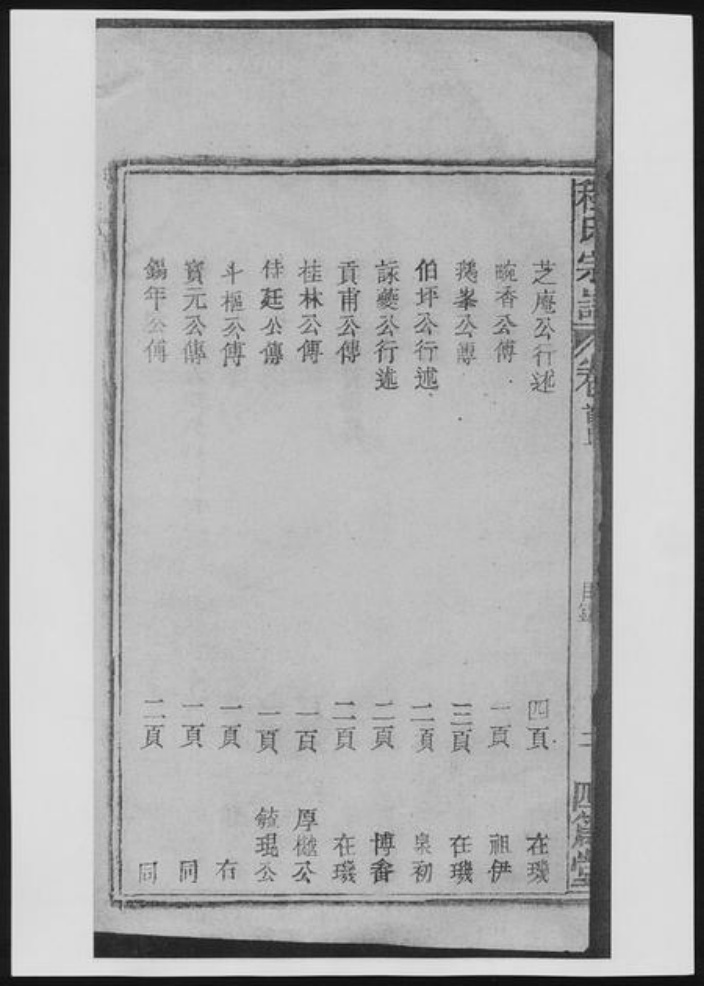 程氏宗譜 卷首上 目錄 二 四箴堂
芝庵公行述 四頁 在璣
畹香公傳 一頁 祖伊
鵝峯公傳 三頁 在璣
伯坪公行述 二頁 泉初
詠夔公行述 二頁 博番
貢甫公傳 二頁 在璣
桂林公傳 一頁 厚樾公
侍廷公傳 一頁 毓琨公
斗樞公傳 一頁 右
寶元公傳 一頁 同
錫年公傳 二頁 同